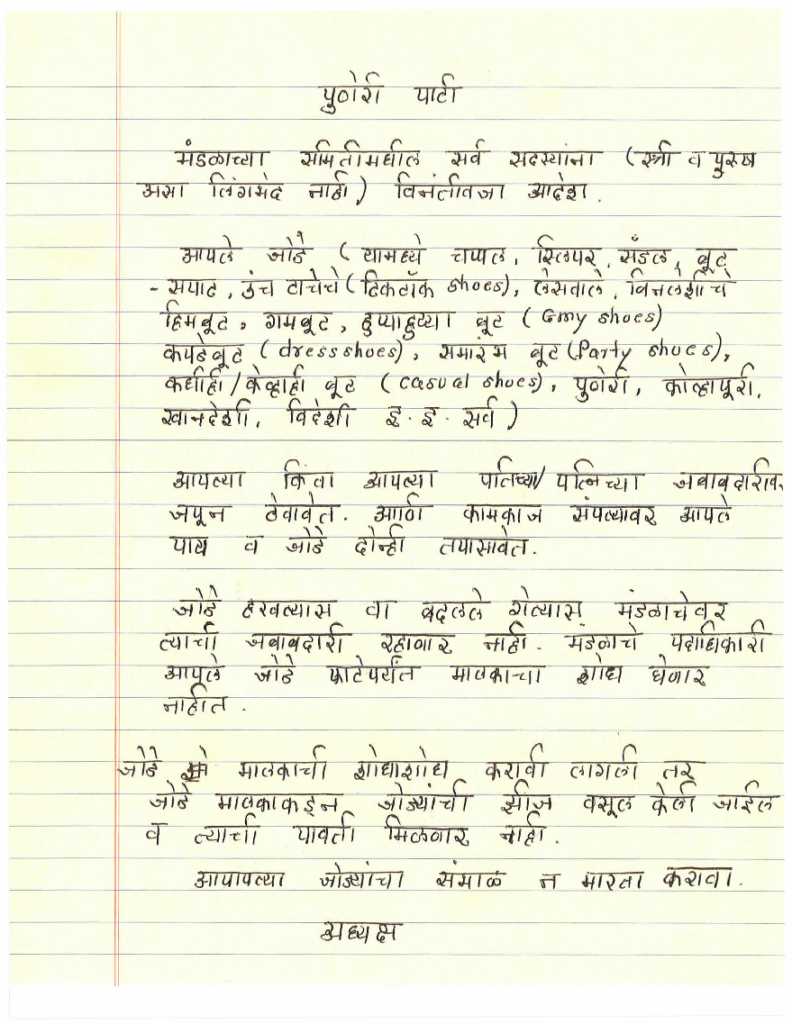 पुणेरी पाटी
मंडळाच्या समितीमधील सर्व सदस्यांना (स्त्री व पुरूष
असा लिंगभेद नाही) विनंतीवजा आदेश.
आपले जोडे (यामध्ये चप्पल, स्लिपर, सँडल, बूट
- सपाट, उंच टाचेचे (टिकटॉक shoes), लेसवाले, विनलेशीचे
हिमबूट, गमबूट, हुप्याहुप्या बूट (Gmy shoes)
कपडेबूट (dressshoes), समारंभ बूट (Party shoes),
कधीही/केव्हाही बूट (casual shoes), पुणेरी, कोल्हापूरी,
खानदेशी, विदेशी इ. इ. सर्व)
आपल्या किंवा आपल्या पतिच्या/पत्निच्या जबाबदारीवर
जपून ठेवावेत. आणि कामकाज संपल्यावर आपले
पाय व जोडे दोन्ही तपासावेत.
जोडे हरवल्यास वा बदलले गेल्यास मंडळाचेवर
त्याची जबाबदारी रहाणार नाही. मंडळाचे पदाधिकारी
आपले जोडे फाटेपर्यंत मालकाचा शोध घेणार
नाहीत.
जोडे मालकाची शोधाशोध करावी लागली तर
जोडे मालकाकडून जोड्यांची झीज वसूल केली जाईल
व त्याची पावती मिळणार नाही.
आपापल्या जोड्यांचा संभाळ न मारता करावा.
अध्यक्ष